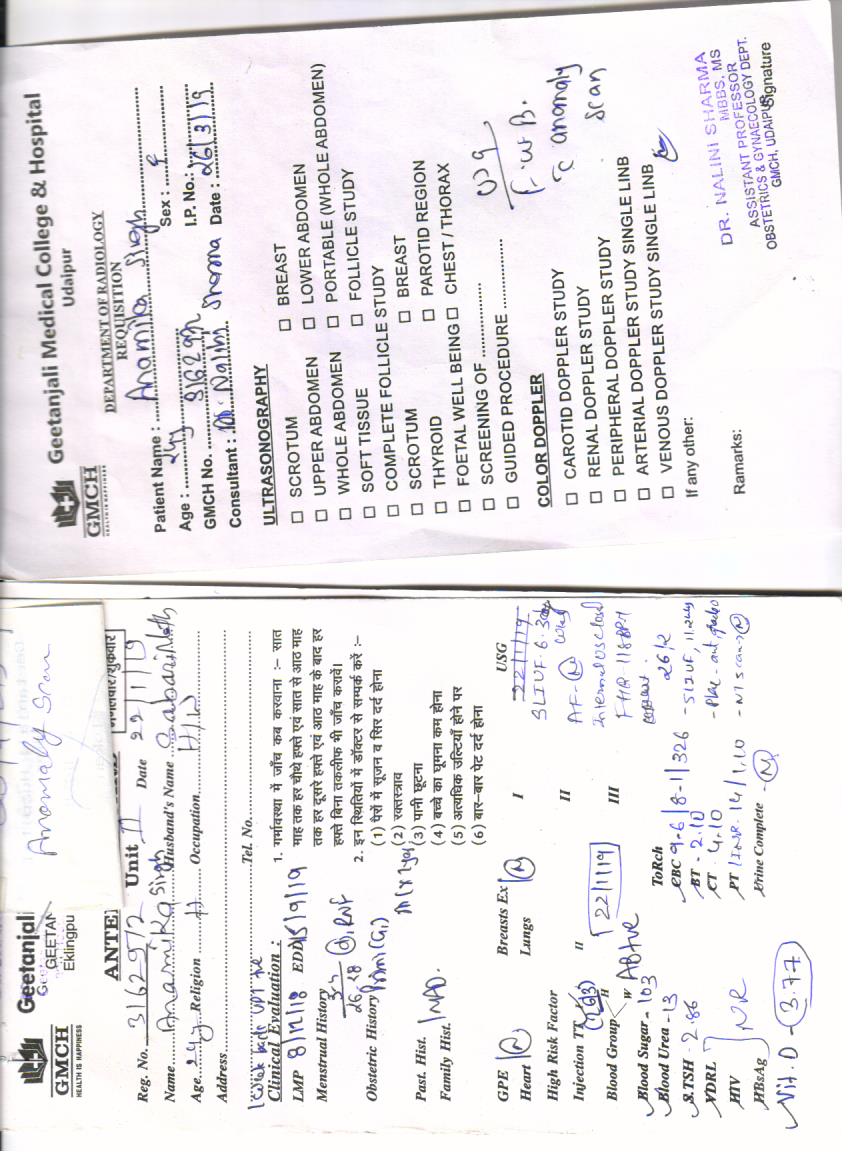 GMCH
HEALTH IS HAPPINESS
Geetanjali Medical College & Hospital
Udaipur
DEPARTMENT OF RADIOLOGY
REQUISITION
Patient Name : Anamika Singh
Age : 24y Sex : F
GMCH No. I.P. No.:
Consultant : Dr. Nalini Sharma Date : 26/3/19
ULTRASONOGRAPHY
☐ SCROTUM ☐ BREAST
☐ UPPER ABDOMEN ☐ LOWER ABDOMEN
☐ WHOLE ABDOMEN ☐ PORTABLE (WHOLE ABDOMEN)
☐ SOFT TISSUE ☐ FOLLICLE STUDY
☐ COMPLETE FOLLICLE STUDY
☐ SCROTUM ☐ BREAST
☐ THYROID ☐ PAROTID REGION
☐ FOETAL WELL BEING ☐ CHEST / THORAX
☐ SCREENING OF
☐ GUIDED PROCEDURE
F.W.B.
anomaly
scan
COLOR DOPPLER
☐ CAROTID DOPPLER STUDY
☐ RENAL DOPPLER STUDY
☐ PERIPHERAL DOPPLER STUDY
☐ ARTERIAL DOPPLER STUDY SINGLE LINB
☐ VENOUS DOPPLER STUDY SINGLE LINB
If any other:
Ramarks:
DR. NALINI SHARMA
MBBS, MS
ASSISTANT PROFESSOR
OBSTETRICS & GYNAECOLOGY DEPT.
GMCH, UDAIPUR
Signature
GMCH
HEALTH IS HAPPINESS
Geetanjali
GEETAN
Eklingpu
Anomaly Scan
ANTE
मंगलवार/शुक्रवार
Reg. No. 316292 Unit II Date 22/1/19
Name Anamika Singh Husband's Name
Age 24y Religion H Occupation H/W
Address
Tel. No.
Clinical Evaluation :
LMP 8/12/18 EDD 15/9/19
Menstrual History
26-28
Obstetric History Primi (G1)
Past. Hist. NAD
Family Hist.
1. गर्भावस्था में जाँच कब करवाना :– सात
माह तक हर चौथे हफ्ते एवं सात से आठ माह
तक हर दूसरे हफ्ते एवं आठ माह के बाद हर
हफ्ते बिना तकलीफ भी जाँच करावें।
2. इन स्थितियों में डॉक्टर से सम्पर्क करें :–
(1) पैरों में सूजन व सिर दर्द होना
(2) रक्तस्त्राव
(3) पानी छूटना
(4) बच्चे का घूमना कम होना
(5) अत्यधिक उल्टियाँ होने पर
(6) बार–बार पेट दर्द होना
GPE N Breasts Ex N USG
Heart Lungs I 22/1/19
High Risk Factor II
Injection TT I II III
Blood Group H W ABtive 22/1/19
SLIUF 6
AF- N
Internal os closed
FHR 118 BPM
26/2
Blood Sugar - 103 ToRch
Blood Urea - 13 CBC 9.6/8-1/326
S.TSH - 2.86 BT - 2.10
VDRL CT - 4.10
HIV NR PT INR 14/1.10
HBsAg Urine Complete - N
- NT scan - N
Vit. D - 3.77